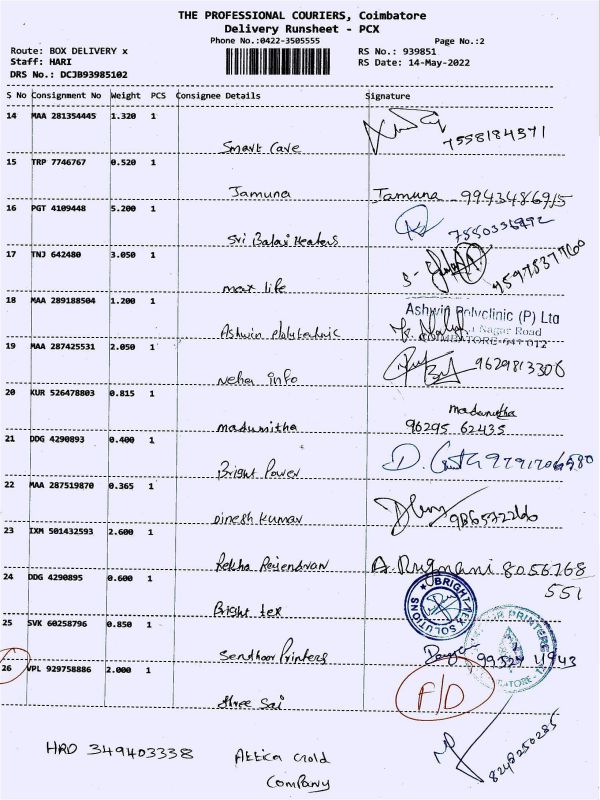 THE PROFESSIONAL COURIERS, Coimbatore
Delivery Runsheet - PCX
Phone No.:0422-3505555
Page No.:2
Route: BOX DELIVERY x
RS No.: 939851
Staff: HARI
RS Date: 14-May-2022
DRS No.: DCJB93985102
S No Consignment No Weight PCS Consignee Details Signature
14 MAA 281354445 1.320 1
Smart Care 7558184371
15 TRP 7746767 0.520 1
Jamuna Jamuna 9943486915
16 PGT 4109448 5.200 1
Sri Balaji Heaters
17 TNJ 642480 3.050 1
max life 9597837760
18 MAA 289188504 1.200 1
Ashwin Polyclinic (P) Ltd
Nagar Road
Ashwin
19 MAA 287425531 2.050 1
Neha info 9629813306
20 KUR 526478803 0.815 1
madumitha
madumitha 96295 62435
21 DDG 4290893 0.400 1
Bright Power
22 MAA 287519870 0.365 1
Dinesh Kumar
23 IXM 501432593 2.600 1
Rekha Rajendran A. Rugmani 8056768
551
24 DDG 4290895 0.600 1
Bright tex
BRIGHT TEX SOLUTIONS
25 SVK 60258796 0.850 1
Sendhoor Printers
26 VPL 929758886 2.000 1
Shree Sai F/D
HRO 349403338 Attica Gold
Company
8248250285